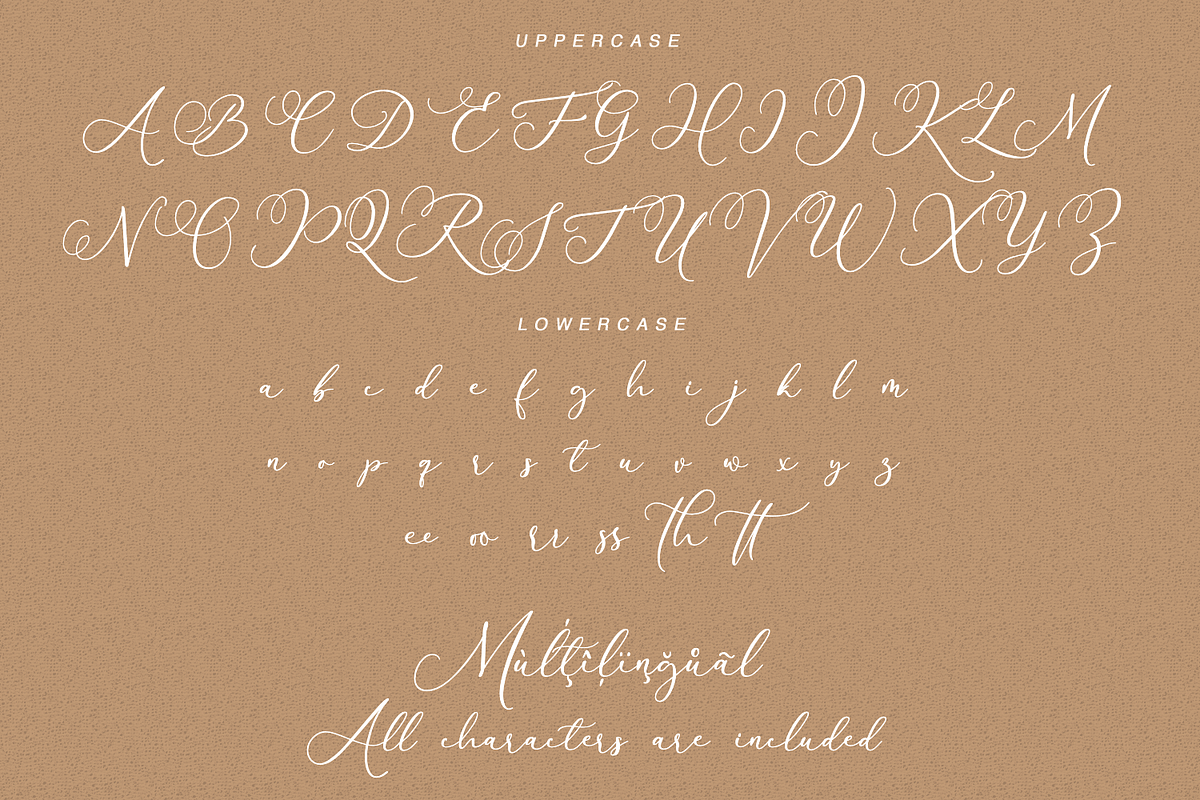 UPPERCASE
A B C D E F G H I J K L M
N O P Q R S T U V W X Y Z
LOWERCASE
a b c d e f g h i j k l m
n o p q r s t u v w x y z
ee oo rr ss Th tt
Mùĺţîļïņğůãl
All characters are included